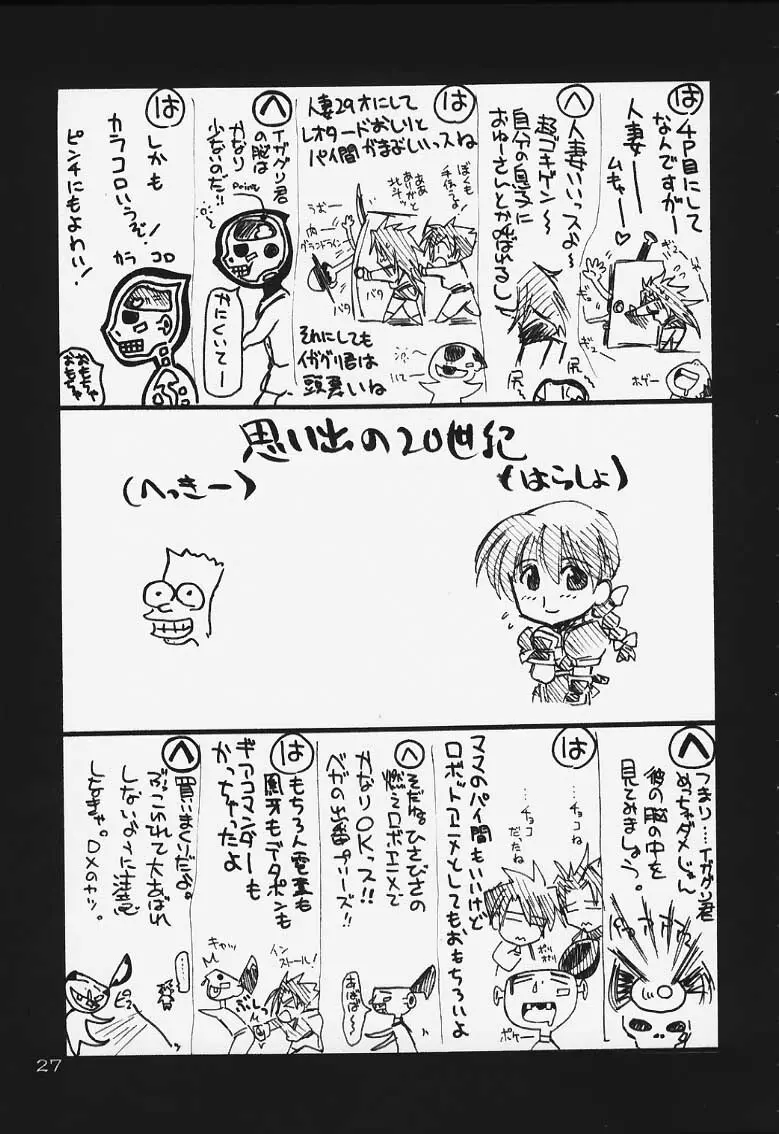 は
4P目にして
なんですがー
人妻ーー
ムキャー♡
ギュ
ギュー
ホゲー
へ
人妻いいっスよ〜
超ゴキゲン〜
自分の息子に
おゆーさんとかよばれるし
尻
尻
は
人妻29才にして
レオタードおしりと
パイ間がまぶしいっスね
ぼくも
手伝うよ!
ああ
北斗ッ
うおー
グランドライン
バタ
バタ
それにしても
イガグリ君は
頭悪いね
へ
イガグリ君
の脳は
かなり
少ないのだ!!
Point
かにくいてー
は
しかも
カラコロいうぞ!
ピンチにもよわい!
カラ
コロ
おもちゃ
おもちゃ
思い出の20世紀
(はらしょ)
(へっきー)
へ
つまり…イガグリ君
めっちゃダメじゃん
彼の脳の中を
見てみましょう。
は
…チョコね
…チョコ
だったね
ママのパイ間もいいけど
ロボットアニメとしてもおもちろいよ
ポリ
ポリ
ポケー
へ
そだね ひさびさの
燃えロボアニメで
かなりOKっス!!
ベガの出番プリーズ!!
あばば〜
は
もちろん電童も
凰牙もデータポンも
ギアコマンダーも
かっちゃったよ
キャッ
インストール!
ブしっ
へ
買いまくりだよ。
ぶっこわれて大あばれ
しないように注意
しなきゃ。DXのヤツ。
ピュー
27